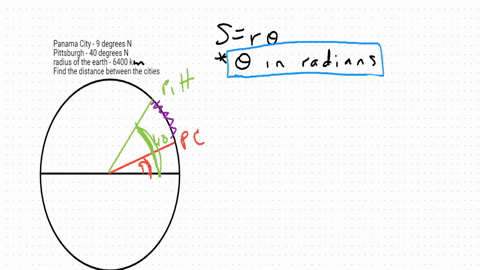 Panama City - 9 degrees N
Pittsburgh - 40 degrees N
radius of the earth - 6400 km
Find the distance between the cities
S = r θ
* θ in radians
Pitt
40
PC
9